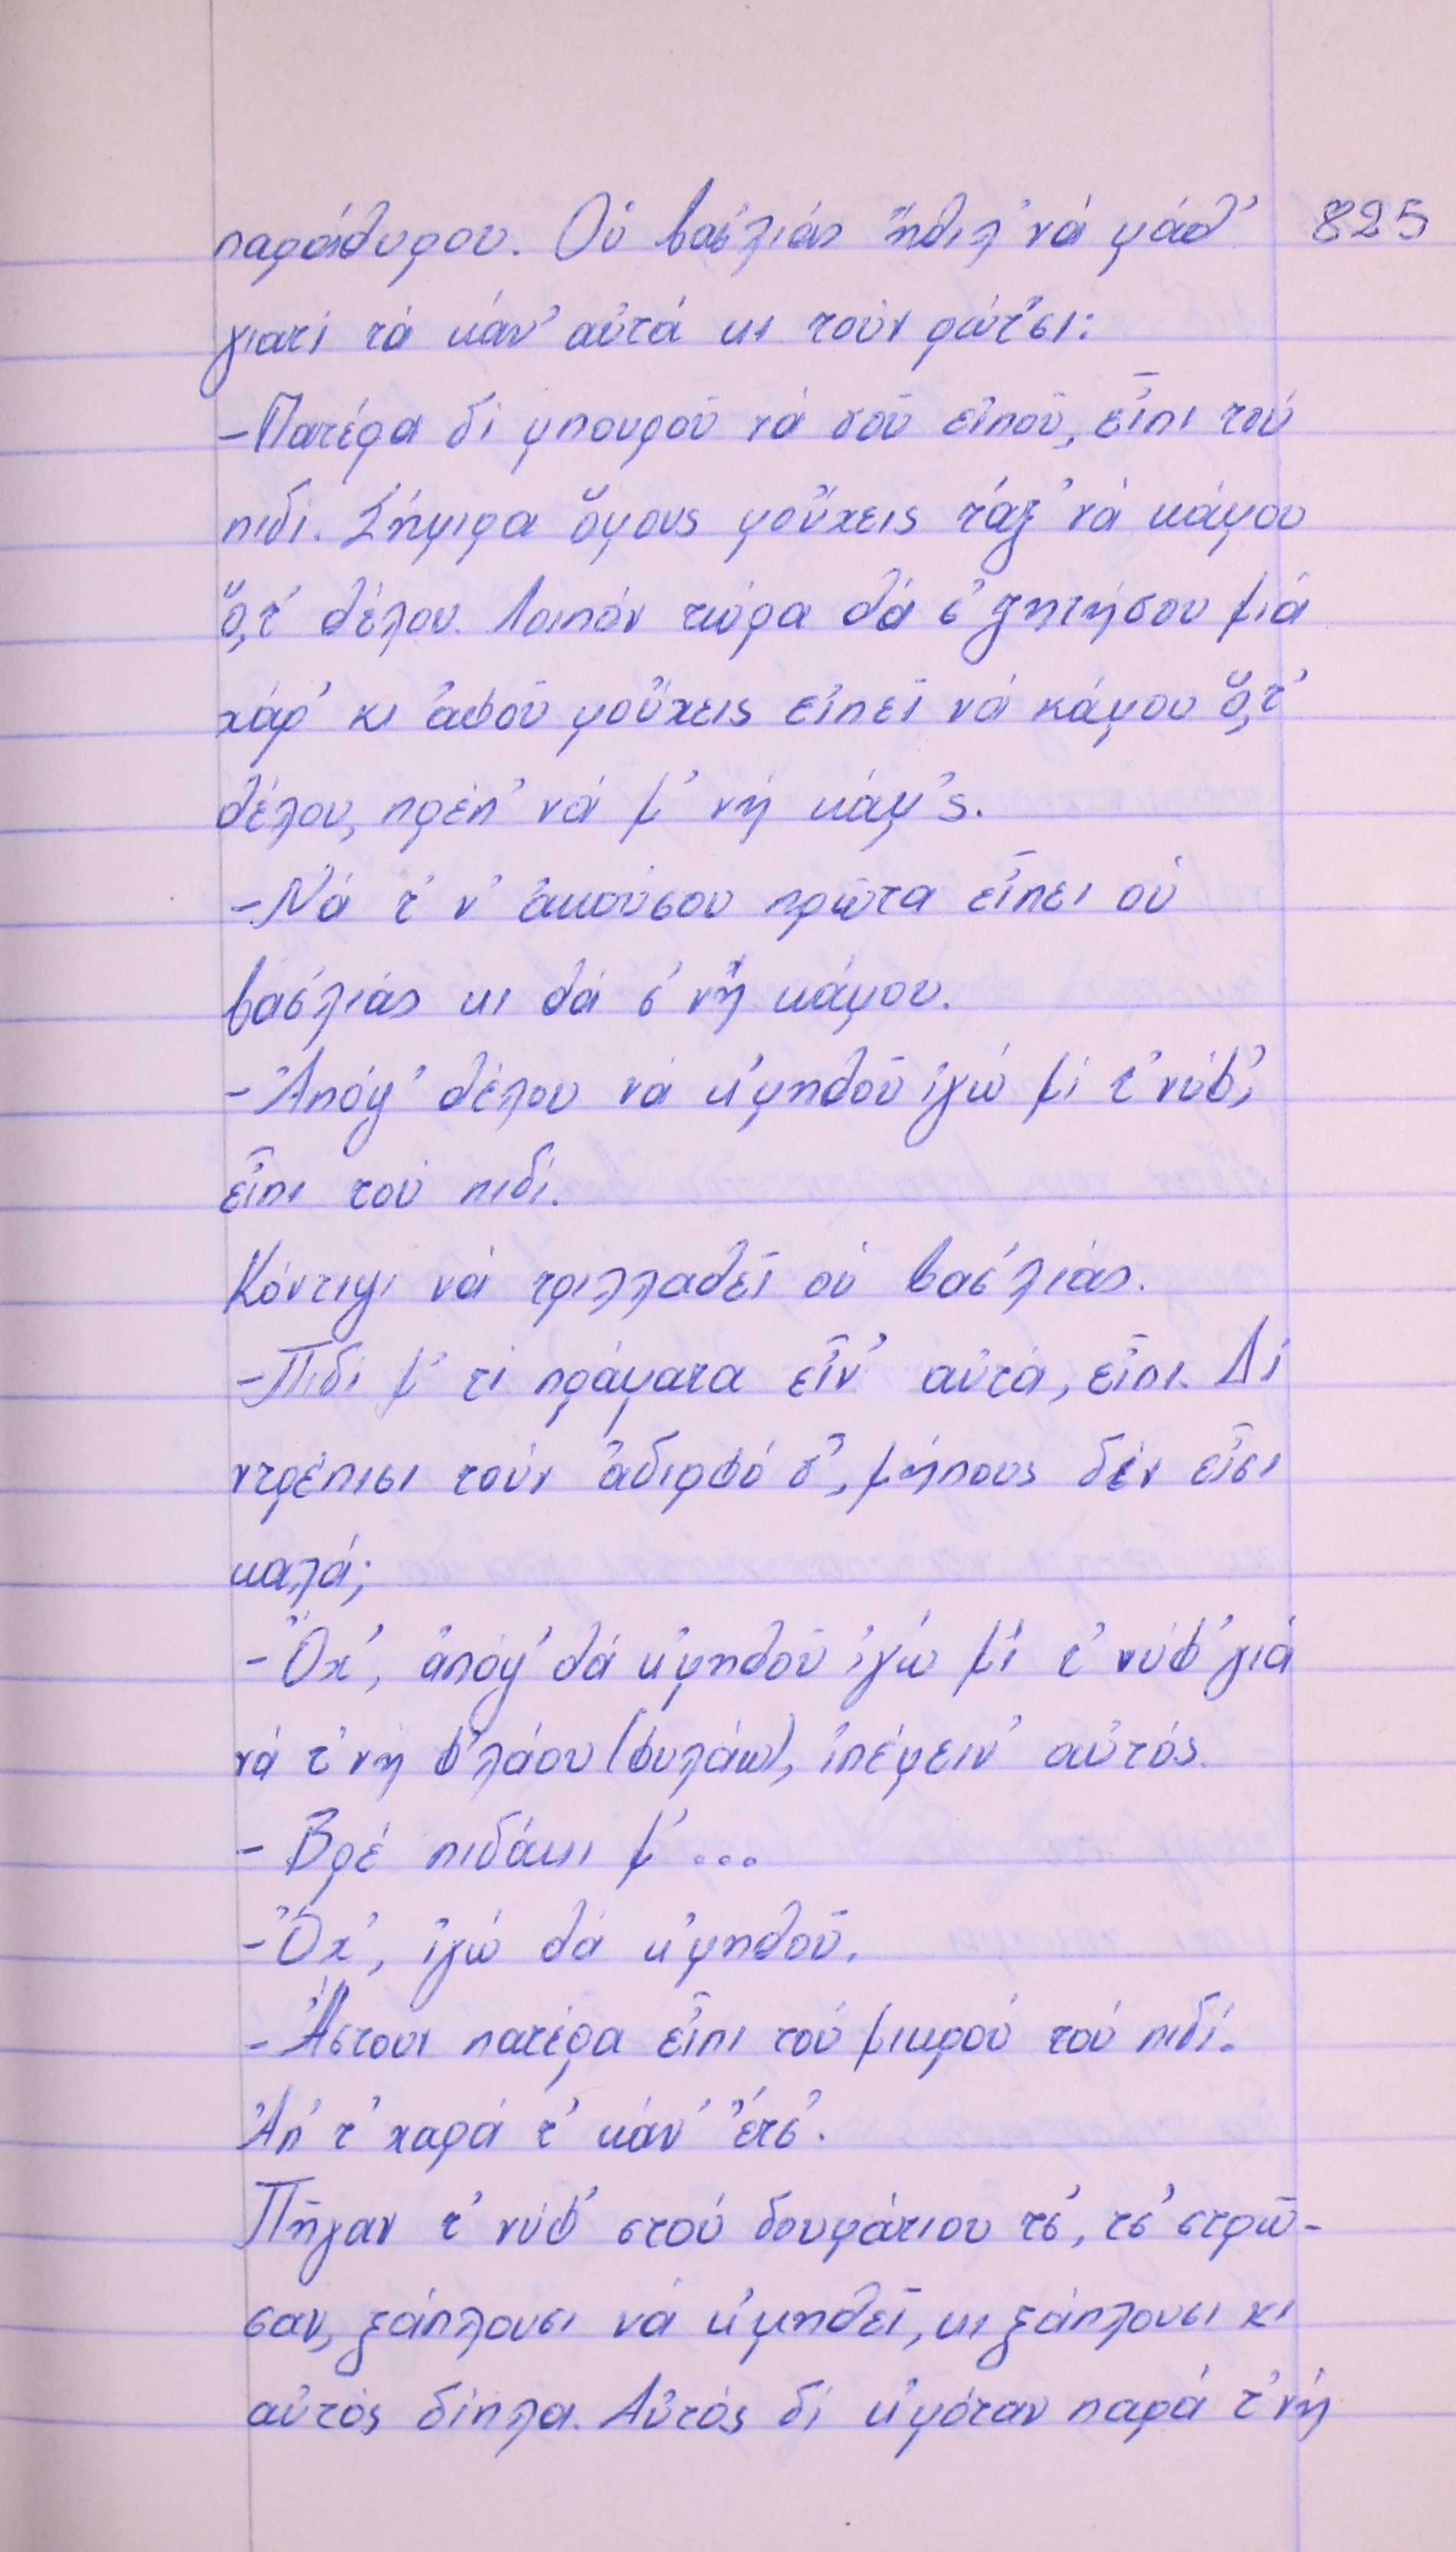 παράθυρου. Οὑ βασ'λιάς ἤθιλ' νά μάθ' 825
γιατί τά κάν' αὐτά κι τούν ρώτ'σι:
-Πατέρα δέ μπουρoῦ νά σοῦ εἰποῦ, εἶπι τού
πιδί. Σήμιρα ὅμους μοὔχεις τάξ' νά κάμου
ὅ,τ' θέλου. Λοιπόν τώρα θά σ' ζητήσου μιά
χάρ' κι ἀφοῦ μοὔχεις εἰπεῖ νά κάμου ὅ,τ'
θέλου, πρέπ' νά μ' νή κάμ'ς.
-Νά τ' ν' ἀκούσου πρῶτα εἶπει οὑ
βασ'λιάς κι θά σ' νή κάμου.
-Ἀπόψ' θέλου νά κ'μηθοῦ ἰγώ μί τ' νύφ',
εἶπι τού πιδί.
Κόντιψι νά τριλλαθεῖ οὑ βασ'λιάς.
-Πιδί μ' τί πράματα εἶν' αὐτά, εἶπι. Δέ
ντρέπισι τούν ἀδιρφό σ', μήπους δέν εἶσι
καλά;
-Ὄχ', ἀπόψ' θά κ'μηθοῦ ἰγώ μί τ' νύφ' γιά
νά τ' νη φ'λάου (φυλάω), ἰπέμειν' αὐτός.
- Βρέ πιδάκι μ' ...
-Ὄχ', ἰγώ θά κ'μηθοῦ.
-Ἄστουν πατέρα εἶπι τού μικρού τού πιδί.
Ἀπ' τ' χαρά τ' κάν' ἔτσ'.
Πῆγαν τ' νύφ' στού δουμάτιου τσ', τσ' στρῶ-
σαν, ξάπλουσι νά κ'μηθεῖ, κι ξάπλουσι κι
αὐτός δίπλα. Αὐτός δέ κ'μόταν παρά τ' νή